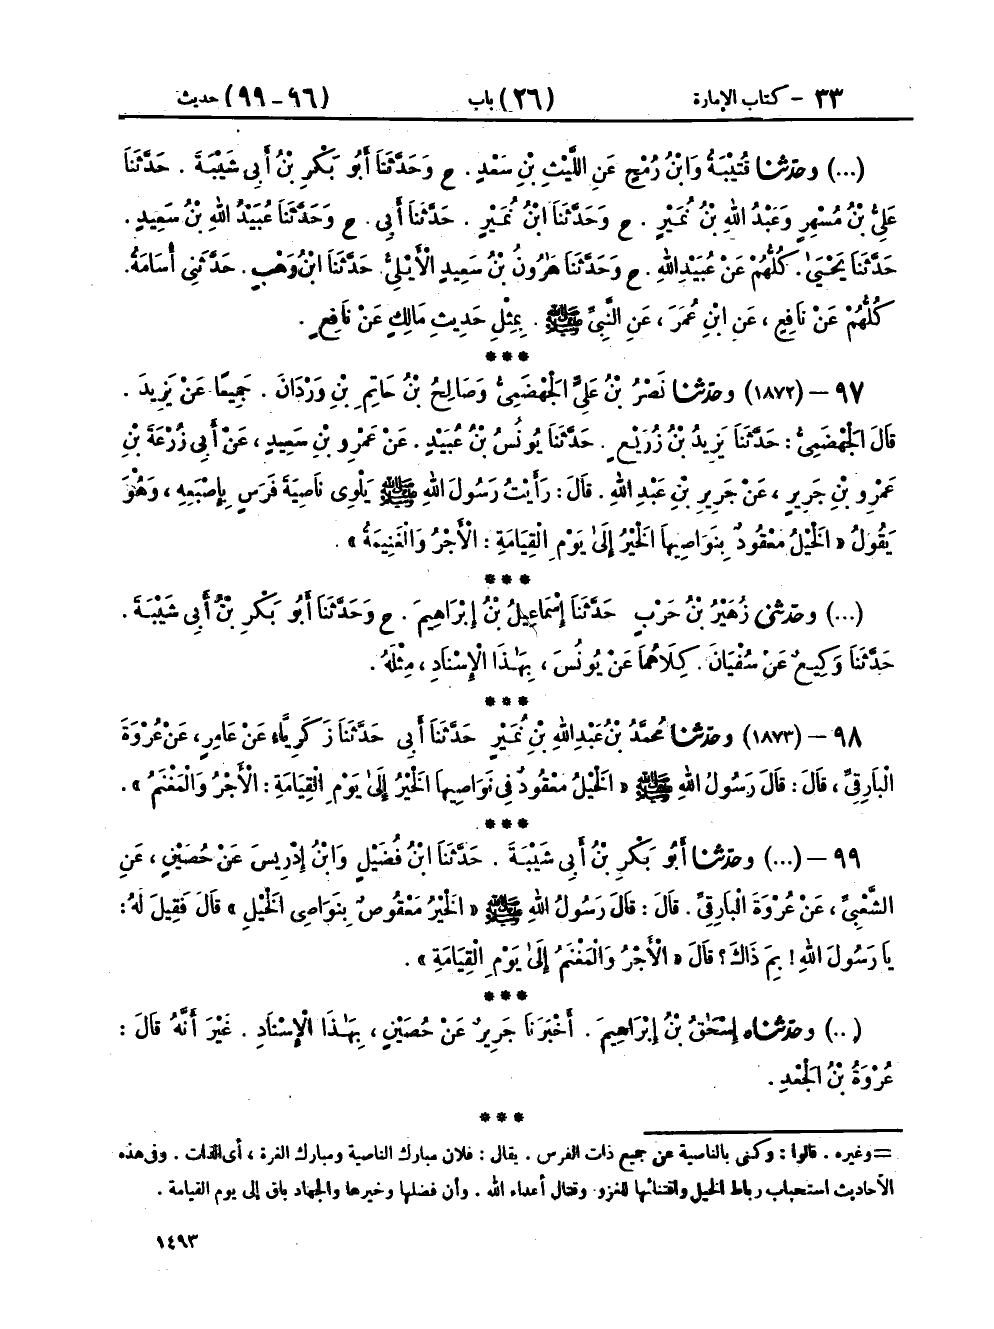 ٣٣ – كتاب الإمارة (٢٦) باب (٩٦–٩٩) حديث
(...) وحدثنا قُتَيْبَةُ وَابْنُ رُمْحٍ عَنِ اللَّيْثِ بْنِ سَعْدٍ. ح وَحَدَّثَنَا أَبُو بَكْرِ بْنُ أَبِي شَيْبَةَ. حَدَّثَنَا
عَلِيُّ بْنُ مُسْهِرٍ وَعَبْدُ اللهِ بْنُ نُمَيْرٍ. ح وَحَدَّثَنَا ابْنُ نُمَيْرٍ. حَدَّثَنَا أَبِي. ح وَحَدَّثَنَا عُبَيْدُ اللهِ بْنُ سَعِيدٍ.
حَدَّثَنَا يَحْيَىٰ. كُلُّهُمْ عَنْ عُبَيْدِ اللهِ. ح وَحَدَّثَنَا هَٰرُونُ بْنُ سَعِيدٍ الْأَيْلِيُّ. حَدَّثَنَا ابْنُ وَهْبٍ. حَدَّثَنِي أُسَامَةُ.
كُلُّهُمْ عَنْ نَافِعٍ، عَنِ ابْنِ عُمَرَ، عَنِ النَّبِيِّ ﷺ. بِمِثْلِ حَدِيثِ مَالِكٍ عَنْ نَافِعٍ.
***
٩٧ – (١٨٧٢) وحدثنا نَصْرُ بْنُ عَلِيٍّ الْجَهْضَمِيُّ وَصَالِحُ بْنُ حَاتِمِ بْنِ وَرْدَانَ. جَمِيعًا عَنْ يَزِيدَ.
قَالَ الْجَهْضَمِيُّ: حَدَّثَنَا يَزِيدُ بْنُ زُرَيْعٍ. حَدَّثَنَا يُونُسُ بْنُ عُبَيْدٍ. عَنْ عَمْرِو بْنِ سَعِيدٍ، عَنْ أَبِي زُرْعَةَ بْنِ
عَمْرِو بْنِ جَرِيرٍ، عَنْ جَرِيرِ بْنِ عَبْدِ اللهِ. قَالَ: رَأَيْتُ رَسُولَ اللهِ ﷺ يَلْوِي نَاصِيَةَ فَرَسٍ بِإِصْبَعِهِ، وَهُوَ
يَقُولُ «الْخَيْلُ مَعْقُودٌ بِنَوَاصِيهَا الْخَيْرُ إِلَىٰ يَوْمِ الْقِيَامَةِ: الْأَجْرُ وَالْغَنِيمَةُ».
***
(...) وحدثني زُهَيْرُ بْنُ حَرْبٍ حَدَّثَنَا إِسْمَاعِيلُ بْنُ إِبْرَاهِيمَ. ح وَحَدَّثَنَا أَبُو بَكْرِ بْنُ أَبِي شَيْبَةَ.
حَدَّثَنَا وَكِيعٌ عَنْ سُفْيَانَ. كِلَاهُمَا عَنْ يُونُسَ، بِهَٰذَا الْإِسْنَادِ، مِثْلَهُ.
***
٩٨ – (١٨٧٣) وحدثنا مُحَمَّدُ بْنُ عَبْدِ اللهِ بْنِ نُمَيْرٍ حَدَّثَنَا أَبِي حَدَّثَنَا زَكَرِيَّاءُ عَنْ عَامِرٍ، عَنْ عُرْوَةَ
الْبَارِقِيِّ، قَالَ: قَالَ رَسُولُ اللهِ ﷺ «الْخَيْلُ مَعْقُودٌ فِي نَوَاصِيهَا الْخَيْرُ إِلَىٰ يَوْمِ الْقِيَامَةِ: الْأَجْرُ وَالْمَغْنَمُ».
***
٩٩ – (...) وحدثنا أَبُو بَكْرِ بْنُ أَبِي شَيْبَةَ. حَدَّثَنَا ابْنُ فُضَيْلٍ وَابْنُ إِدْرِيسَ عَنْ حُصَيْنٍ، عَنِ
الشَّعْبِيِّ، عَنْ عُرْوَةَ الْبَارِقِيِّ. قَالَ: قَالَ رَسُولُ اللهِ ﷺ «الْخَيْرُ مَعْقُوصٌ بِنَوَاصِي الْخَيْلِ» قَالَ فَقِيلَ لَهُ:
يَا رَسُولَ اللهِ! بِمَ ذَاكَ؟ قَالَ «الْأَجْرُ وَالْمَغْنَمُ إِلَىٰ يَوْمِ الْقِيَامَةِ».
***
(...) وحدثناه إِسْحَٰقُ بْنُ إِبْرَاهِيمَ. أَخْبَرَنَا جَرِيرٌ عَنْ حُصَيْنٍ، بِهَٰذَا الْإِسْنَادِ. غَيْرَ أَنَّهُ قَالَ:
عُرْوَةُ بْنُ الْجَعْدِ.
***
=وغيره. قالوا: وكنى بالناصية عن جميع ذات الفرس. يقال: فلان مبارك الناصية ومبارك الغرة، أى الذات. وفى هذه
الأحاديث استحباب رباط الخيل واقتنائها للغزو وقتال أعداء الله. وأن فضلها وخيرها والجهاد باق إلى يوم القيامة.
١٤٩٣